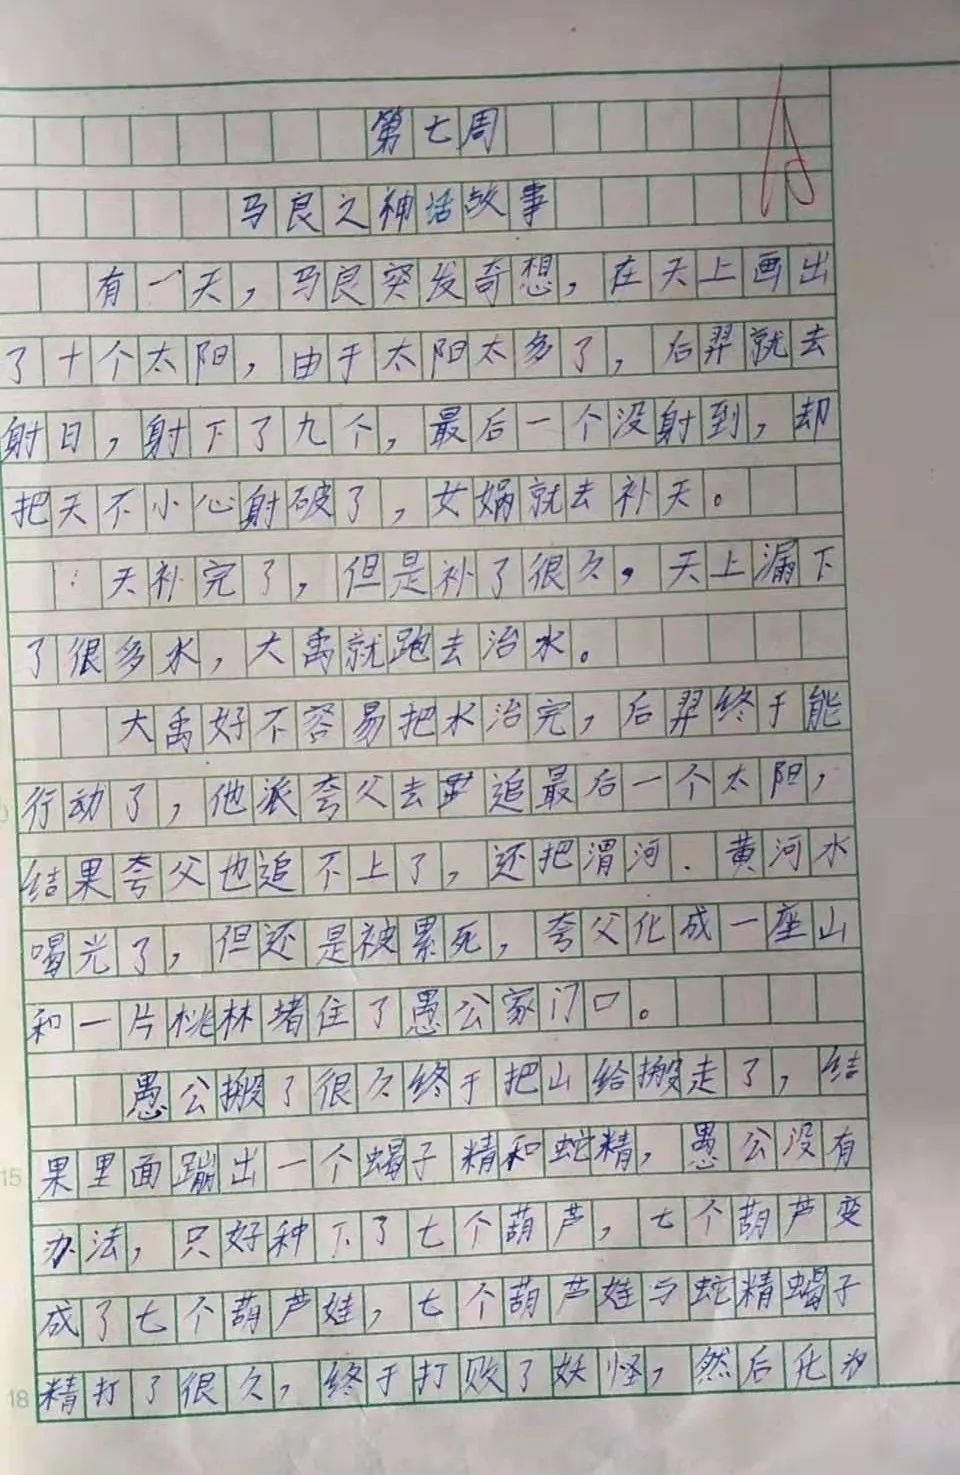 第七周
A
马良之神话故事
有一天，马良突发奇想，在天上画出
了十个太阳，由于太阳太多了，后羿就去
射日，射下了九个，最后一个没射到，却
把天不小心射破了，女娲就去补天。
天补完了，但是补了很久，天上漏下
了很多水，大禹就跑去治水。
大禹好不容易把水治完，后羿终于能
行动了，他派夸父去追最后一个太阳，
结果夸父也追不上了，还把渭河.黄河水
喝光了，但还是被累死，夸父化成一座山
和一片桃林堵住了愚公家门口。
愚公搬了很久终于把山给搬走了，结
果里面蹦出一个蝎子精和蛇精，愚公没有
办法，只好种下了七个葫芦，七个葫芦变
成了七个葫芦娃，七个葫芦娃与蛇精蝎子
精打了很久，终于打败了妖怪，然后化为
15
18